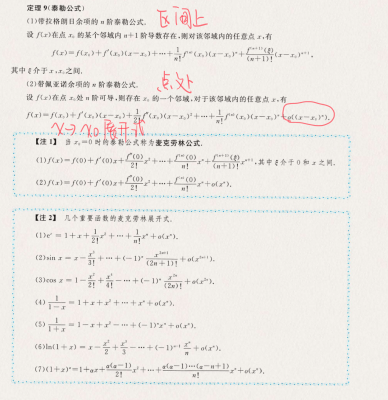 定理9(泰勒公式)
区间上
(1)带拉格朗日余项的 n 阶泰勒公式.
设 f(x)在点 x₀ 的某个邻域内 n+1 阶导数存在,则对该邻域内的任意点 x,有
f(x)=f(x₀)+f'(x₀)(x−x₀)+⋯+\frac{1}{n!}f⁽ⁿ⁾(x₀)(x−x₀)ⁿ+\frac{f⁽ⁿ⁺¹⁾(ξ)}{(n+1)!}(x−x₀)ⁿ⁺¹,
其中 ξ 介于 x,x₀ 之间.
点处
(2)带佩亚诺余项的 n 阶泰勒公式.
设 f(x)在点 x₀ 处 n 阶可导,则存在 x₀ 的一个邻域,对于该邻域内的任意点 x,有
f(x)=f(x₀)+f'(x₀)(x−x₀)+\frac{1}{2!}f''(x₀)(x−x₀)²+⋯+\frac{1}{n!}f⁽ⁿ⁾(x₀)(x−x₀)ⁿ+o((x−x₀)ⁿ).
x→x₀展开式
【注1】 当 x₀=0 时的泰勒公式称为麦克劳林公式.
(1)f(x)=f(0)+f'(0)x+\frac{f''(0)}{2!}x²+⋯+\frac{f⁽ⁿ⁾(0)}{n!}xⁿ+\frac{f⁽ⁿ⁺¹⁾(ξ)}{(n+1)!}xⁿ⁺¹,其中 ξ 介于 0 和 x 之间.
(2)f(x)=f(0)+f'(0)x+\frac{f''(0)}{2!}x²+⋯+\frac{f⁽ⁿ⁾(0)}{n!}xⁿ+o(xⁿ).
【注2】 几个重要函数的麦克劳林展开式.
(1)eˣ=1+x+\frac{1}{2!}x²+⋯+\frac{1}{n!}xⁿ+o(xⁿ).
(2)sin x=x−\frac{x³}{3!}+⋯+(−1)ⁿ\frac{x²ⁿ⁺¹}{(2n+1)!}+o(x²ⁿ⁺¹).
(3)cos x=1−\frac{x²}{2!}+\frac{x⁴}{4!}−⋯+(−1)ⁿ\frac{x²ⁿ}{(2n)!}+o(x²ⁿ).
(4)\frac{1}{1−x}=1+x+x²+⋯+xⁿ+o(xⁿ).
(5)\frac{1}{1+x}=1−x+x²−⋯+(−1)ⁿxⁿ+o(xⁿ).
(6)ln(1+x)=x−\frac{x²}{2}+\frac{x³}{3}−⋯+(−1)ⁿ⁻¹\frac{xⁿ}{n}+o(xⁿ).
(7)(1+x)ᵅ=1+αx+\frac{α(α−1)}{2!}x²+⋯+\frac{α(α−1)⋯(α−n+1)}{n!}xⁿ+o(xⁿ).